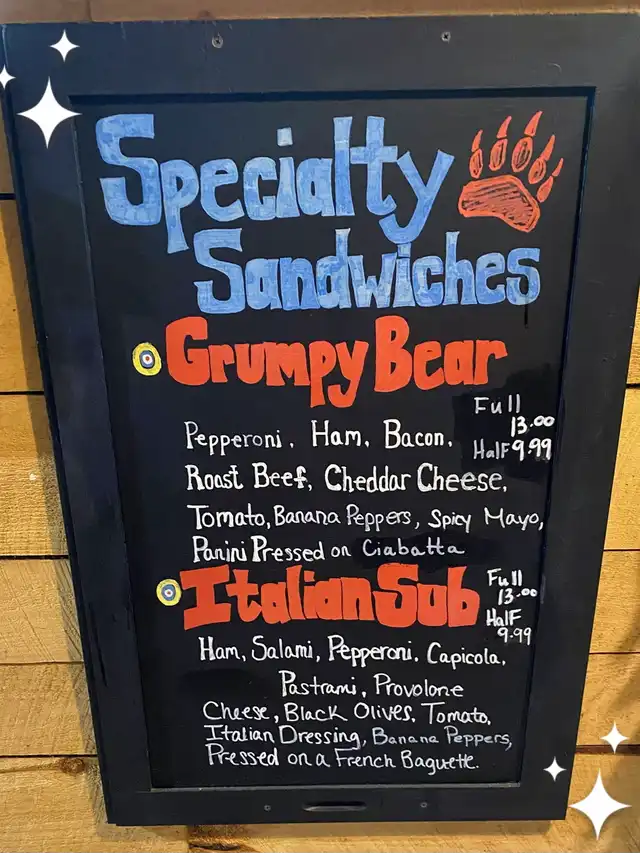 Specialty
Sandwiches
Grumpy Bear
Full
13.00
Half 9.99
Pepperoni, Ham, Bacon,
Roast Beef, Cheddar Cheese,
Tomato, Banana Peppers, Spicy Mayo,
Panini Pressed on Ciabatta
Italian Sub
Full
13.00
Half
9.99
Ham, Salami, Pepperoni, Capicola,
Pastrami, Provolone
Cheese, Black Olives, Tomato,
Italian Dressing, Banana Peppers,
Pressed on a French Baguette.